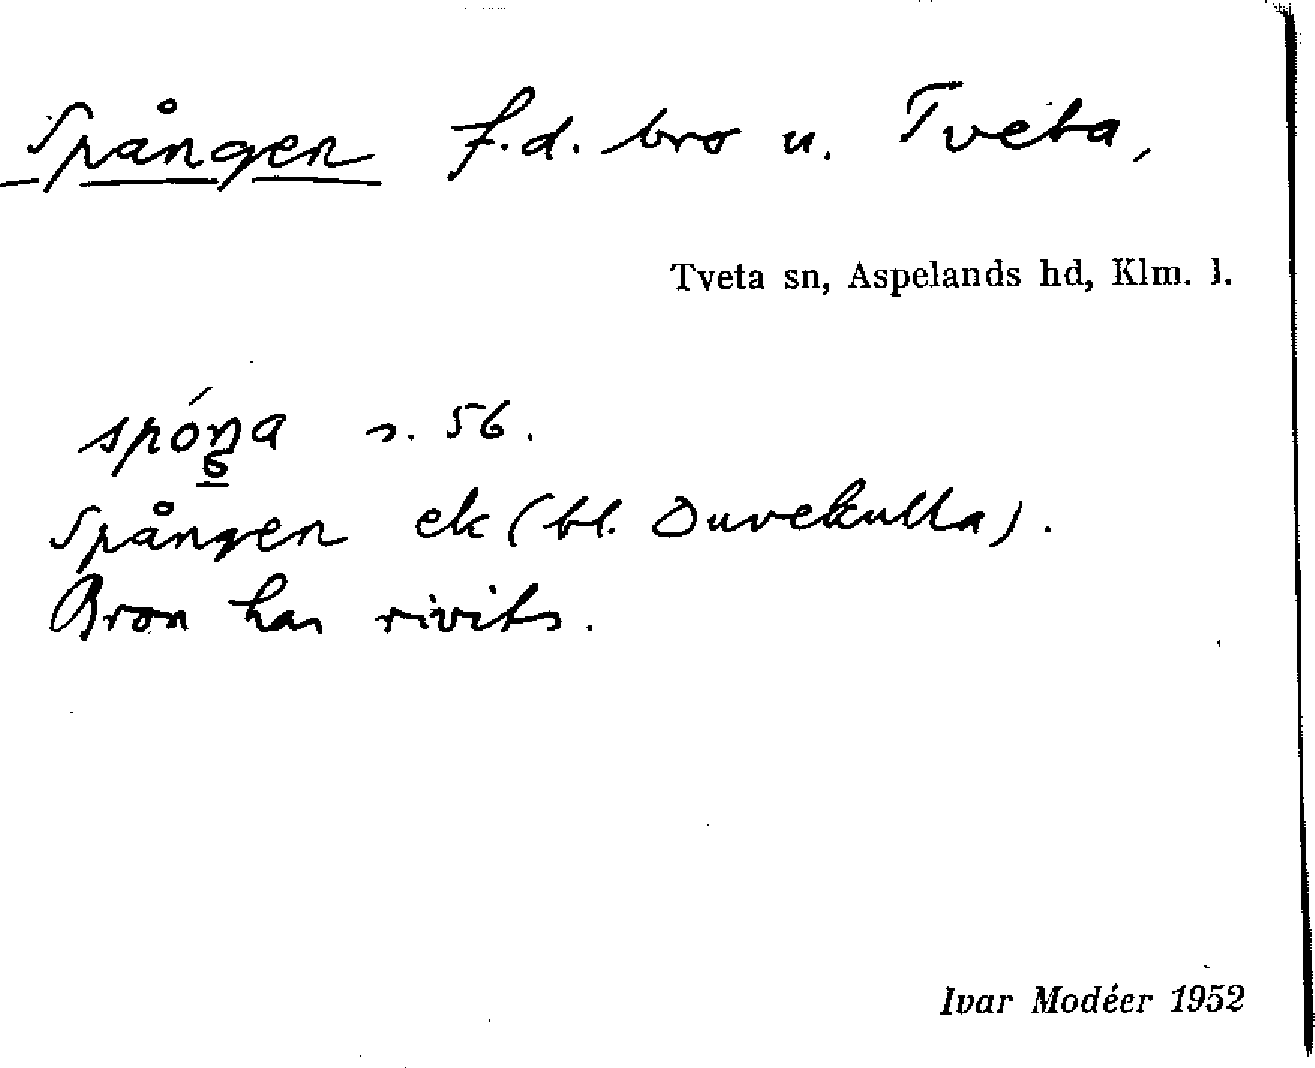 Spången f.d. bro u. Tveta,
Tveta sn, Aspelands hd, Klm. l.
s. 56.
Spången ek (bl. Duvekulla).
Bron har rivits.
Ivar Modéer 1952